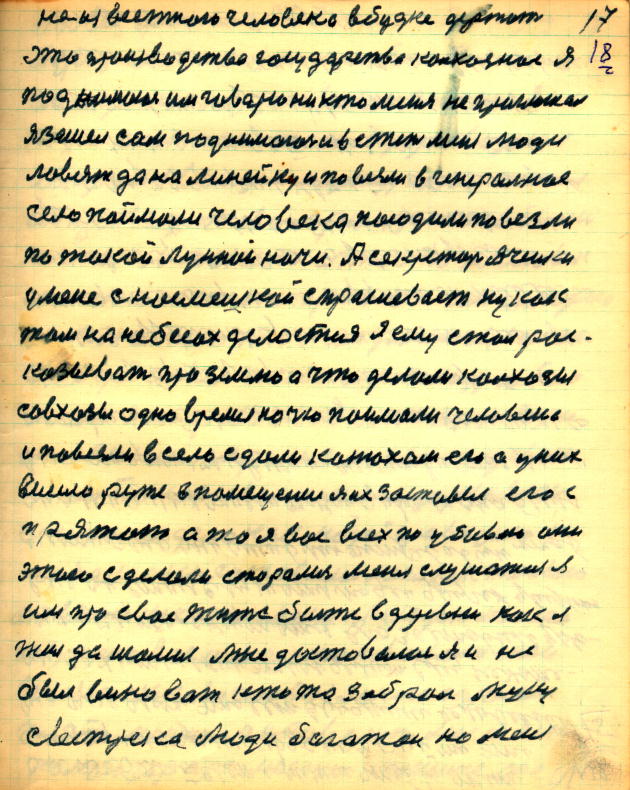 не из веестного человека в будке держат 17
это производство государства колхозное я 18
поднимаюся им говарю никто меня не приглошал
я зашел сам поднимаюся и в степ мения люди
ловят да на линейку и повезли в генералное
село поймоли человека посодили повезли
по токой лунной ночи. А секретор ячейки
у мене с носмешкой спрашевает ну как
там на небесах делается я ему стал рос-
казыват про землю а что делали колхозы
совхозы одно время ночю поимоли человека
и повезли в село сдали катюхам его а у них
висело руже в помещении я их зостовел его с
прятат а то я вас всех по убиваю они
этого сделоли старалис меня слушатся я
им про свое житье бытье в деревни как я
жил да шалил мне достовалося и не
был виноват кто то забрал муку
свистуека люди богатои но мене